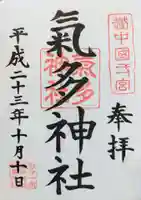 奉拝
越中國一宮
氣多神社
氣多神社
平成二十三年十月十日